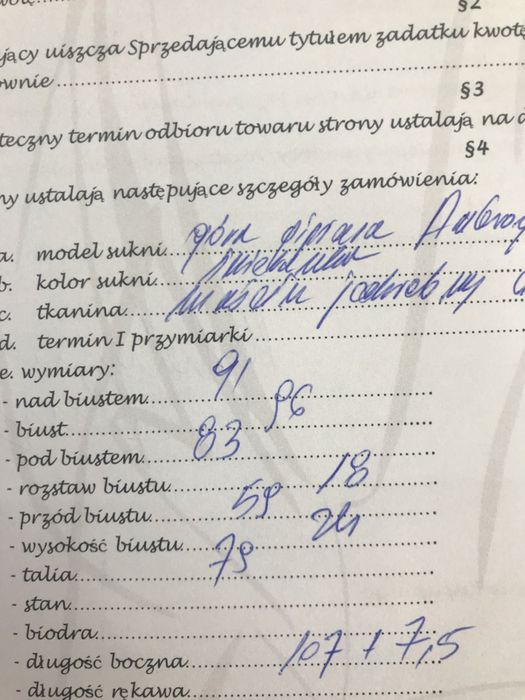 §2
ujący uiszcza Sprzedającemu tytułem zadatku kwotę
ownie
§3
teczny termin odbioru towaru strony ustalają na d
§4
ny ustalają następujące szczegóły zamówienia:
a. model sukni góra
b. kolor sukni śmietanka
c. tkanina jedwabny
d. termin I przymiarki
e. wymiary:
- nad biustem 91
- biust 96
- pod biustem 83
- rozstaw biustu 18
- przód biustu 59
- wysokość biustu 24
- talia 79
- stan
- biodra
- długość boczna 107 + 7,5
- długość rękawa